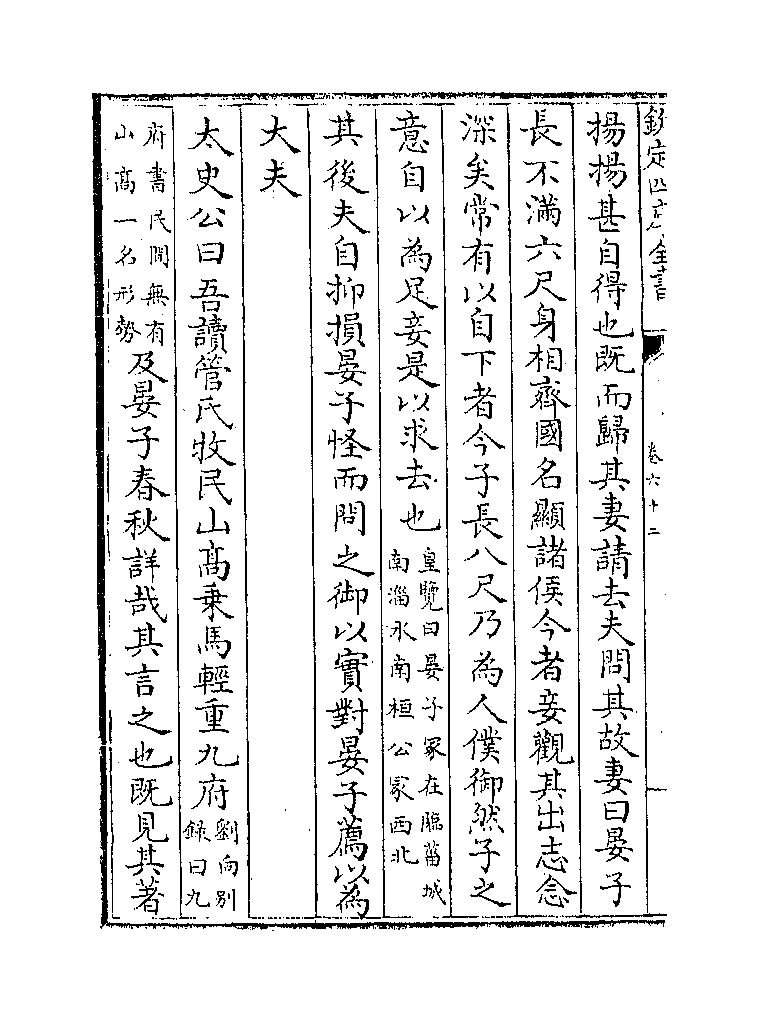 欽定四庫全書
卷六十二
揚揚甚自得也既而歸其妻請去夫問其故妻曰晏子
長不滿六尺身相齊國名顯諸侯今者妾觀其出志念
深矣常有以自下者今子長八尺乃為人僕御然子之
意自以為足妾是以求去也皇覽曰晏子冢在臨菑城南淄水南桓公冢西北
其後夫自抑損晏子怪而問之御以實對晏子薦以為
大夫
太史公曰吾讀管氏牧民山髙乗馬輕重九府劉向别錄曰九
府書民間無有山髙一名形勢及晏子春秋詳哉其言之也既見其著